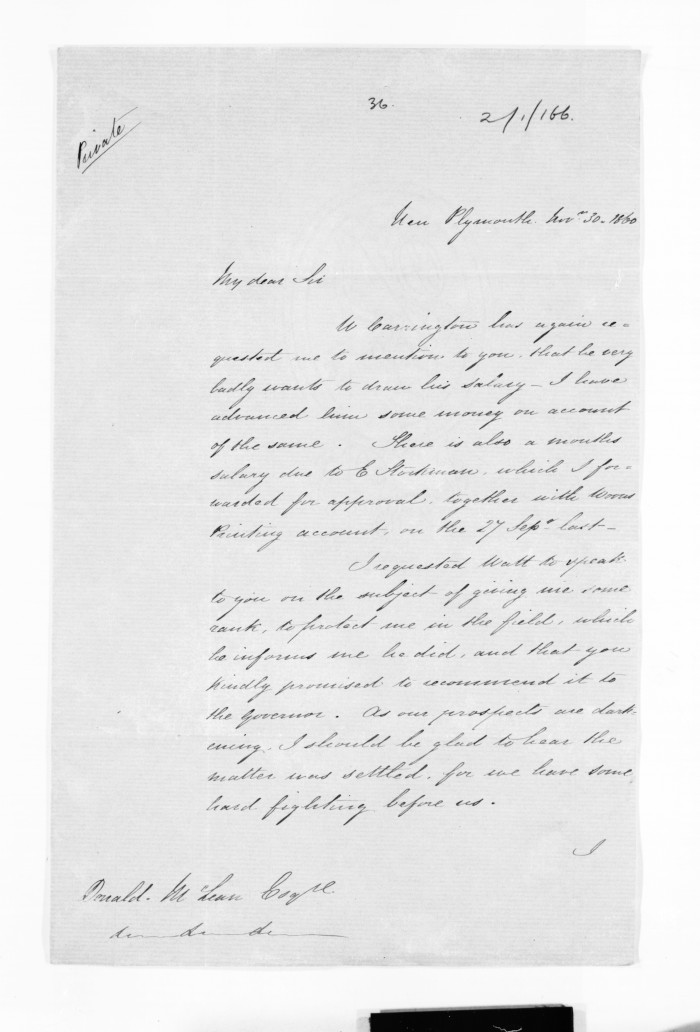 Private
36.
2/1/166.
New Plymouth. Novr 30. 1860
My dear Sir
W Carrington has again re-
quested me to mention to you, that he very
badly wants to draw his salary - I have
advanced him some money on account
of the same. There is also a months
salary due to E Stockman, which I for-
warded for approval, together with Woons
Printing account, on the 27 Sepr last -
I requested Watt to speak
to you on the subject of giving me some
rank, to protect me in the field, which
he informs me he did, and that you
kindly promised to recommend it to
the Governor. As our prospects are dark-
ening, I should be glad to hear the
matter was settled, for we have some
hard fighting before us.
I
Donald. McLean Esqre